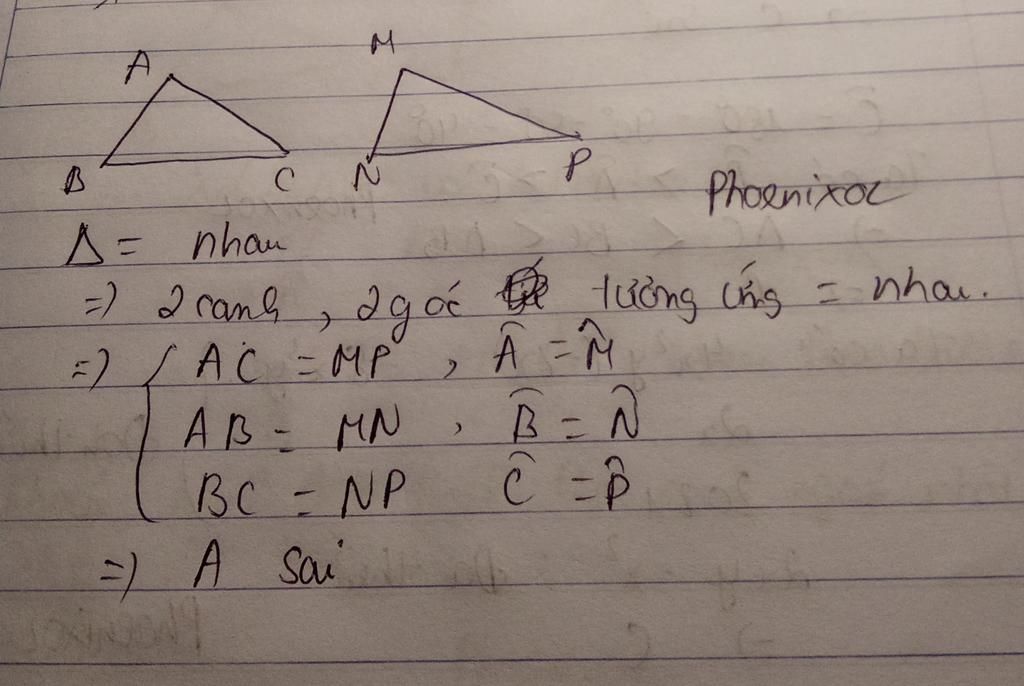 M
A
B C N P
Phoenixoc
Δ = nhau
=> 2 cạnh, 2 góc tương ứng = nhau.
=> { AC = MP , Â = M̂
AB = MN , B̂ = N̂
BC = NP Ĉ = P̂
=> A sai